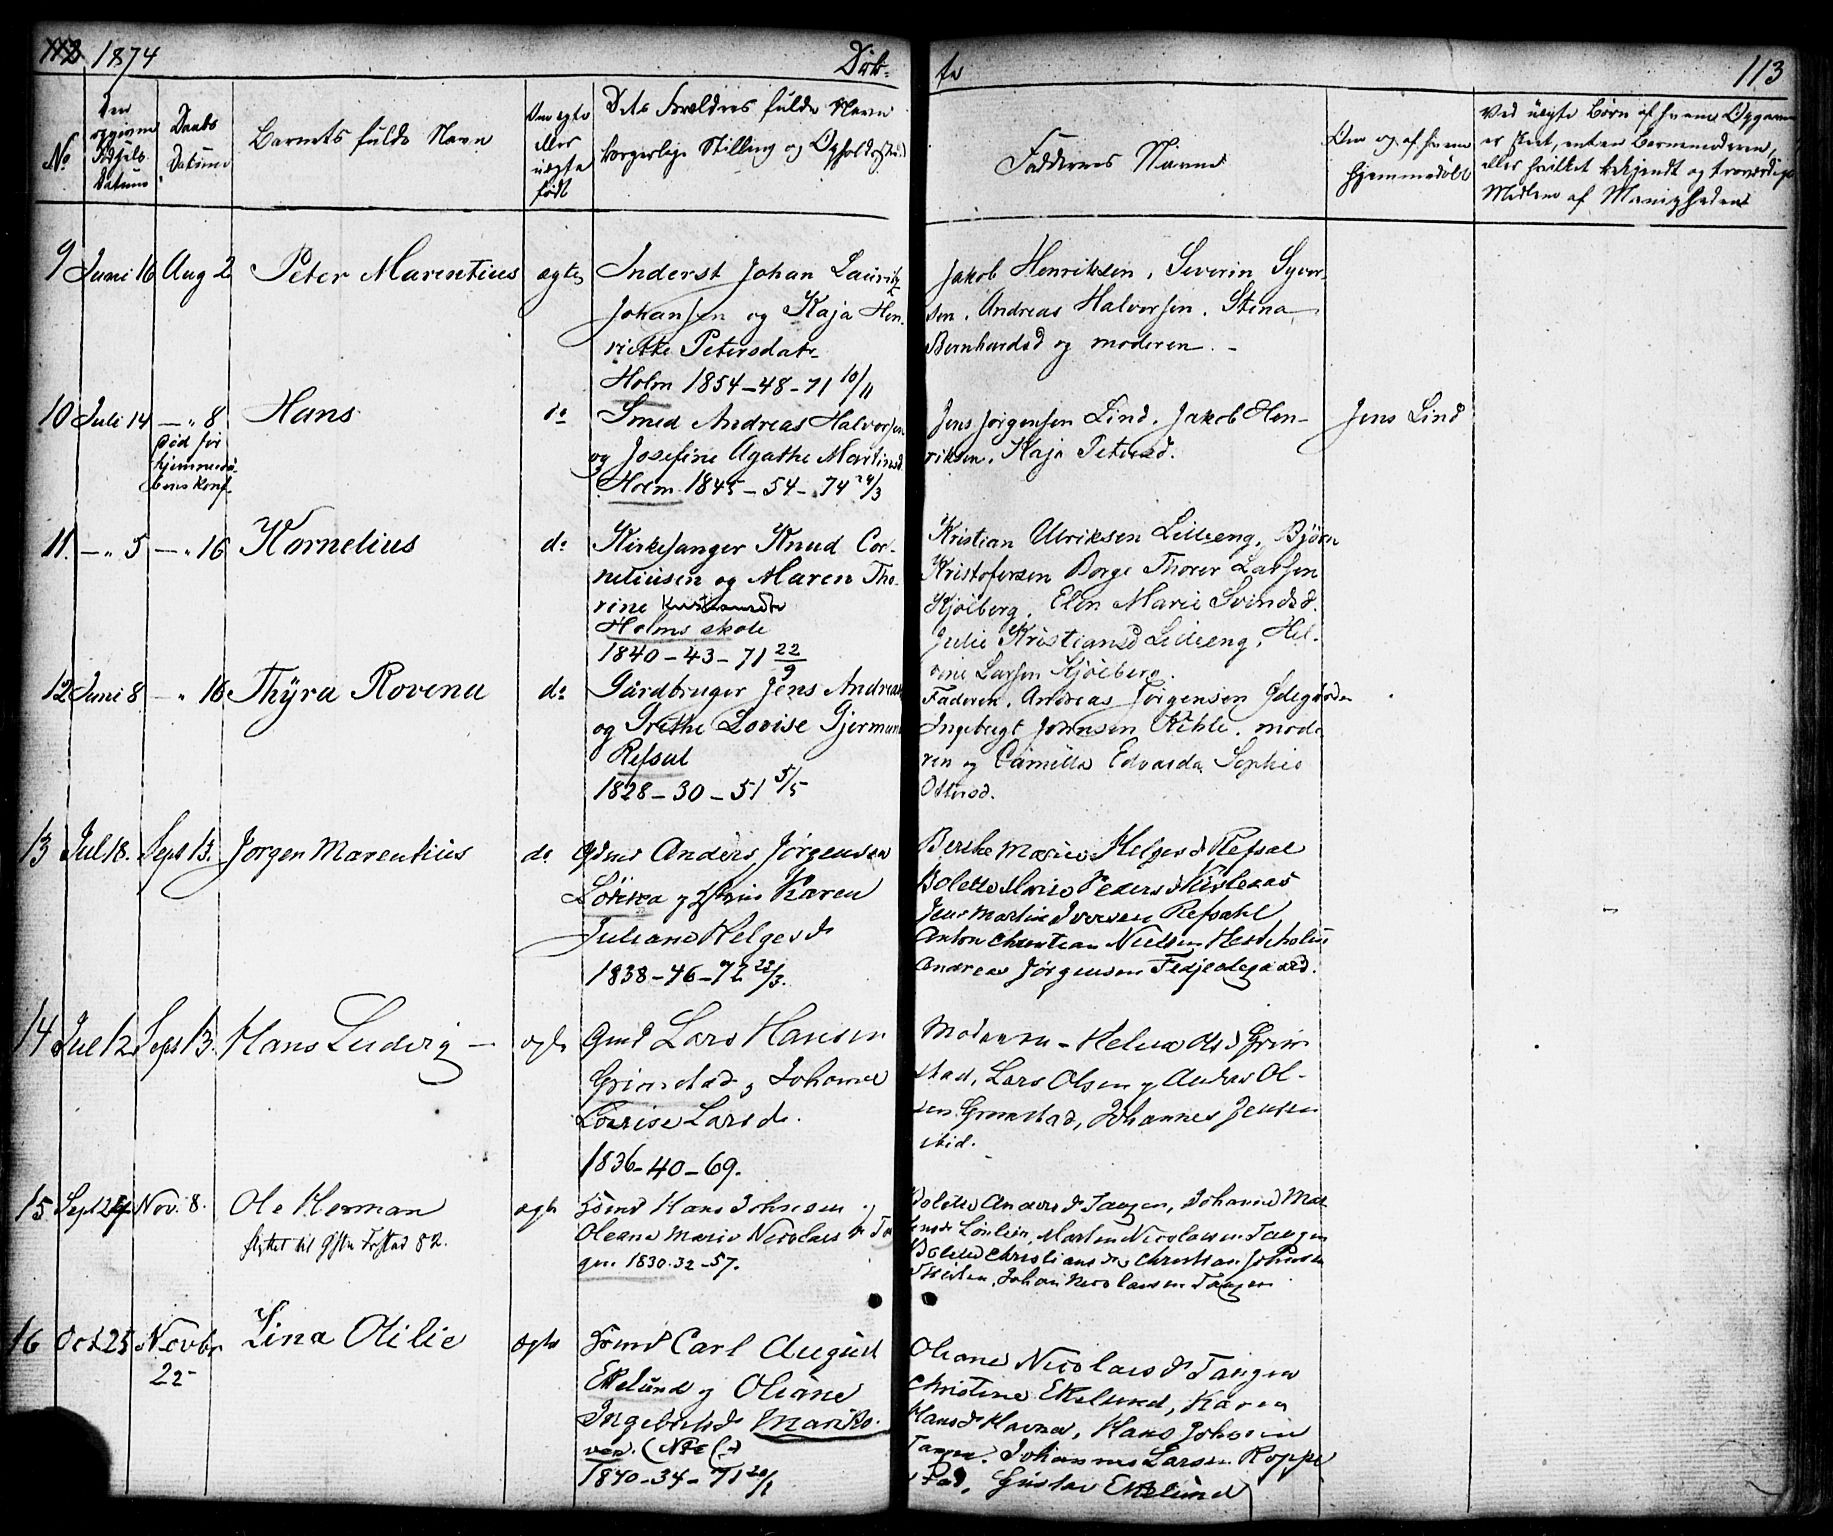 112 1874 Døb-
te 113
No
Den opgivne Fødsels Datum
Daabs Datum
Barnets fulde Navn
Om ægte eller uægte født
Dets Forældres fulde Navn borgerlige Stilling og Opholdssted
Faddernes Navne
Om og af hvem hjemmedøbt
Ved uægte Børn af hvem Opgaven
er skeet, enten Barnemoderen,
eller hvilket bekjendt og troværdigt
Medlem af Menigheden
9 Juni 16 Aug 2 Peter Marentius ægte
Inderst Johan Lauritz
Johansen og Kaja Hen-
riette Petersdatr
Holm 1854-48-71 10/11
Jakob Henriksen, Severin Syver-
sen, Andreas Halvorsen, Stina
Bernhardsd og moderen. -
10 Juli 14 -"8 Hans do
Død før
hjemmedå-
bens konf.
Smed Andreas Halvorsen
og Josefine Agathe Martinsd
Holm 1845-54-74 24/3
Jens Jørgensen Lind, Jakob Hen-
riksen, Kaja Petersd.
Jens Lind
11. -"5 -"16 Kornelius do
Kirkesanger Knud Cor-
neliusen og Maren Tho-
rine Kristiansdtr
Holms skole
1840-43-71 22/9
Kristian Ulriksen Lilleeng, Bjørn
Kristofersen Borge Thorer Larsen
Kjølberg, Elen Marie Svendsd.
Julie Kristiansd Lilleeng, Hel-
rine Larsen Kjølberg.
12 Juni 8 -"16 Thyra Rovena do
Gårdbruger Jens Andreas
og Grethe Lovise Gjermun
Refsal
1828-30-51 5/5
Faderen, Andreas Jørgensen Ødegården
Ingebregt Johnsen Kihle, mode
ren og Camilla Edvarda Sophie
Ottersd.
13 Jul 18. Sept 13. Jørgen Marentius do
Gdmd Anders Jørgensen
Karen
Juliane Helgesdr
1838-46-72 22/3.
Berthe Marie Helgesd Refsal
Bolette Marie Pedersd
Jens Martin Iversen Refsahl
Anton Christian Nielsen
Andreas Jørgensen
14 Jul 12 Sept 13. Hans Ludvig - ægte
Gmd Lars Hansen
Grimstad og Johanne
Lovise Larsdr.
1836-40-69.
Moderen - Helene Olsd Grim
stad, Lars Olsen og Anders Ol-
sen Grimstad, Johannes Jensen
ibid.
15 Sept 24 Nov. 8. Ole Herman ægte
flyttet til 82.
Hans Johnsen og
Oleane Marie Nicolaisdr Tan
gen 1830.32-57.
Bolette Andersd Tangen, Johanne Mat
Martin Nicolaisen Tangen
Bolette Christiansdr Christian Johnsen
Johan Nicolaisen Tangen
16 Oct 25 Novbr
22 Lina Otilie ægte
Carl August
Ekelund og Oleane
Ingebretsdr Marko-
ven. (
1840-34-71 20/1
Oleane Nicolaisdr Tangen
Christine Ekelund, Karen
Hansd Havna, Hans Johnsen
Tangen. Johannes Larsen Roppe
stad, Gustav Ekelund